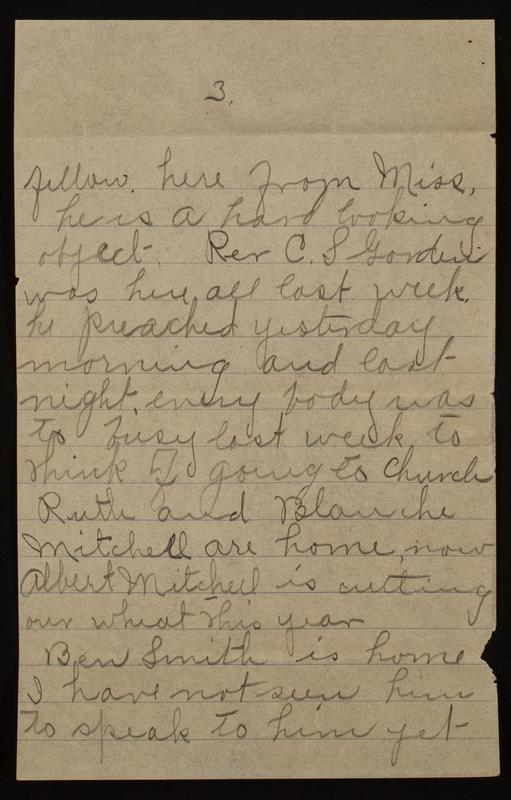 3.
fellow. here from Miss,
he is a hard looking
object. Rev C. S Gorden
was here all last week.
he preached yesterday
morning and last
night, every body was
to busy last week to
think of going to Church
Ruth and Blanche
Mitchell are home, now
Albert Mitchell is cutting
our wheat this year
Ben Smith is home
I have not seen him
to speak to him yet